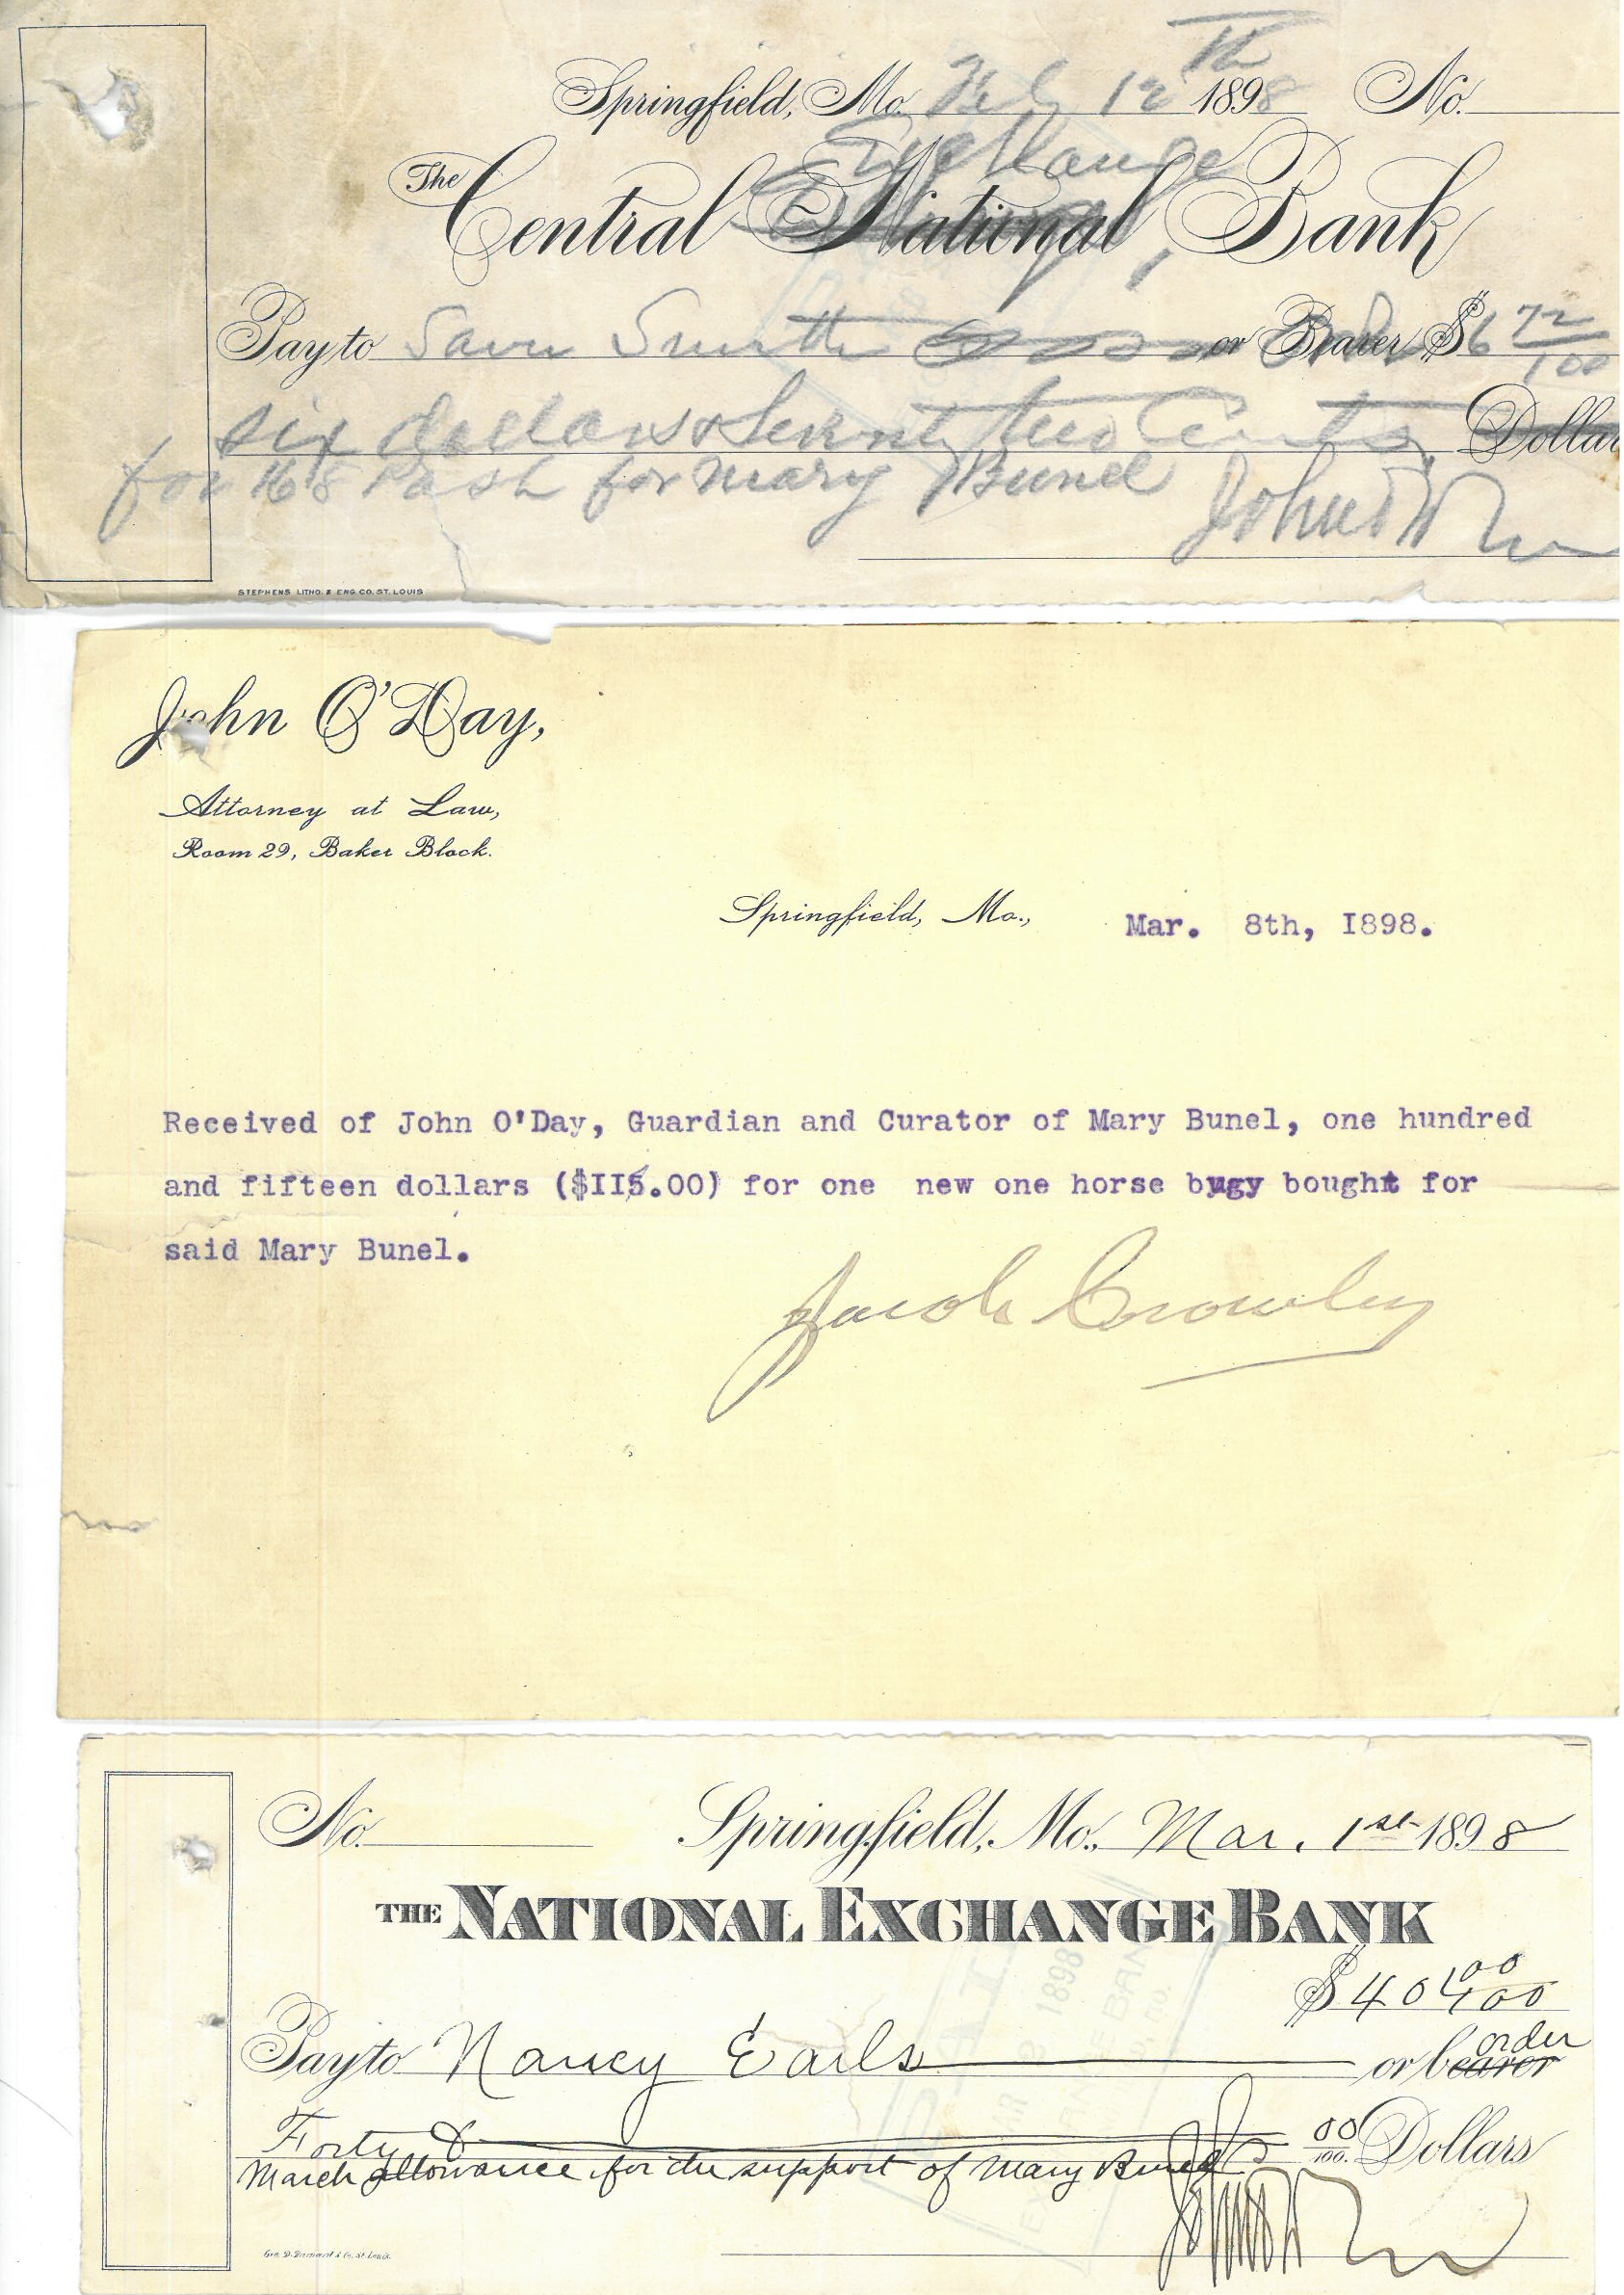 Springfield, Mo. Feb 12th 1898 No.
Exchange
The Central National Bank
Pay to Sam Smith or Bearer $6 72/100
six dollars & Seventy two Cents Dollar
for 168 Posts for Mary Bunel John
STEPHENS LITHO. & ENG. CO. ST. LOUIS
John O'Day,
Attorney at Law,
Room 29, Baker Block.
Springfield, Mo., Mar. 8th, 1898.
Received of John O'Day, Guardian and Curator of Mary Bunel, one hundred
and fifteen dollars ($II5.00) for one new one horse bugy bought for
said Mary Bunel.
Jacob Crowley
No. Springfield, Mo., Mar. 1st 1898
THE NATIONAL EXCHANGE BANK
$40 00/100
order
Pay to Nancy Earls or bearer
Forty & 00/100 Dollars
March allowance for the support of Mary Bunel
Geo. D. Barnard & Co. St. Louis.